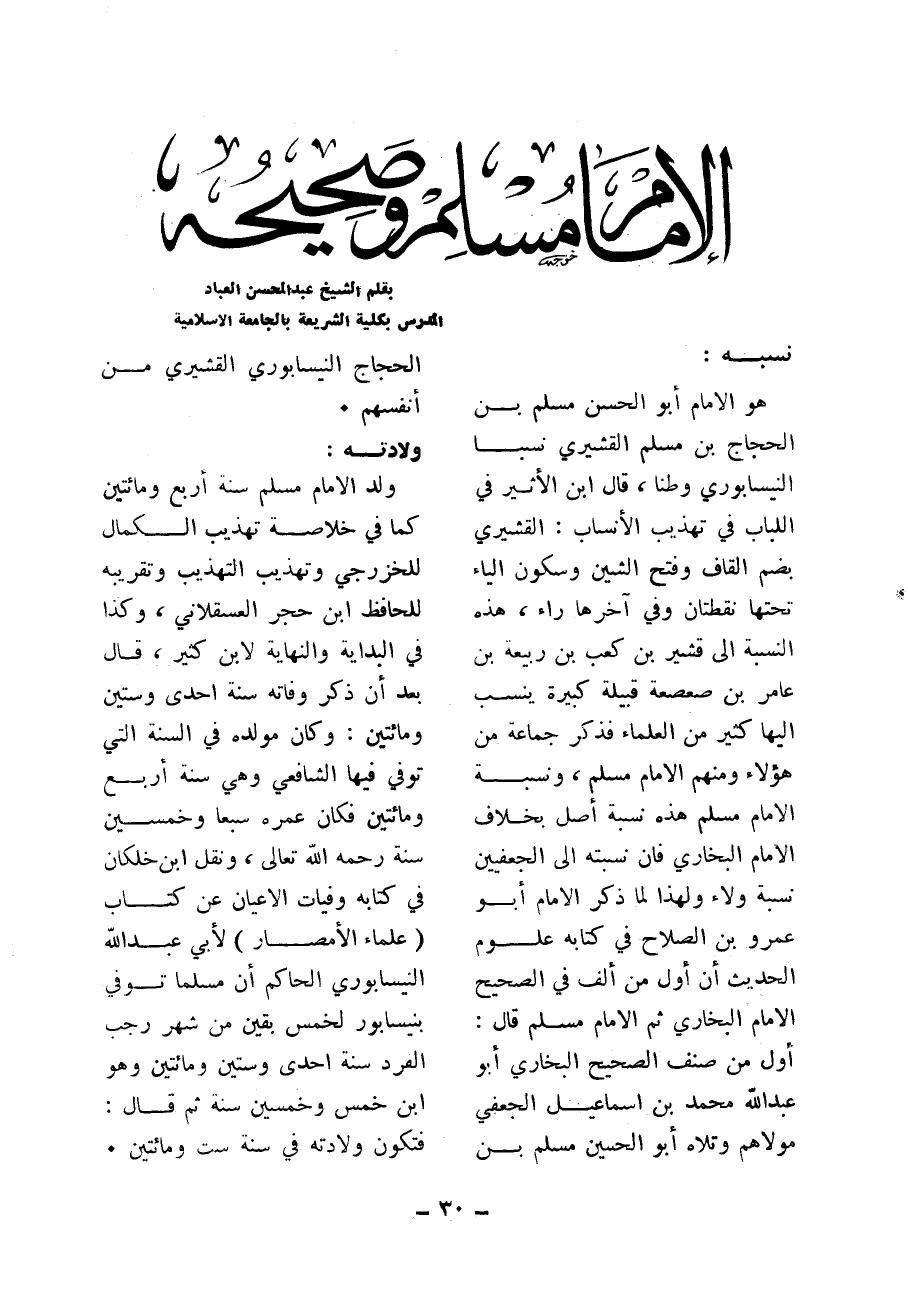 الإمام مسلم وصحيحه
بقلم الشيخ عبدالمحسن العباد
المدرس بكلية الشريعة بالجامعة الاسلامية
نسبـــه :
هو الامام أبو الحسن مسلم بـــن
الحجاج بن مسلم القشيري نسبـــا
النيسابوري وطنا ، قال ابن الأثـير في
اللباب في تهذيب الأنساب : القشيري
بضم القاف وفتح الشين وسكون الياء
تحتها نقطتان وفي آخرها راء ، هذه
النسبة الى قشير بن كعب بن ربيعة بن
عامر بن صعصعة قبيلة كبيرة ينســب
اليها كثير من العلماء فذكر جماعة من
هؤلاء ومنهم الامام مسلم ، ونسبـــة
الامام مسلم هذه نسبة أصل بخـلاف
الامام البخاري فان نسبته الى الجعفيين
نسبة ولاء ولهذا لما ذكر الامام أبـــو
عمرو بن الصلاح في كتابه علـــوم
الحديث أن أول من ألف في الصحيح
الامام البخاري ثم الامام مسـلم قال :
أول من صنف الصحيح البخاري أبو
عبدالله محمد بن اسماعيــل الجعفي
مولاهم وتلاه أبو الحسين مسلم بـــن
الحجاج النيسابوري القشيري مـــن
أنفسهم ٠
ولادتـــه :
ولد الامام مسلم سنة أربع ومائتين
كما في خلاصـة تهذيب الـــكمال
للخزرجي وتهذيب التهذيب وتقريبه
للحافظ ابن حجر العسقلاني ، وكذا
في البداية والنهاية لابن كثير ، قـال
بعد أن ذكر وفاته سنة احدى وستين
ومائتين : وكان مولده في السنة التي
توفي فيها الشافعي وهي سنة أربـــع
ومائتين فكان عمره سبعا وخمســـين
سنة رحمه الله تعالى ، ونقل ابن خلكان
في كتابه وفيات الاعيان عن كتـــاب
( علماء الأمصـــار ) لأبي عبـدالله
النيسابوري الحاكم أن مسلما تـوفي
بنيسابور لخمس بقين من شهر رجب
الفرد سنة احدى وستين ومائتين وهو
ابن خمس وخمسين سنة ثم قـــال :
فتكون ولادته في سنة ست ومائتين ٠
– ٣٠ –